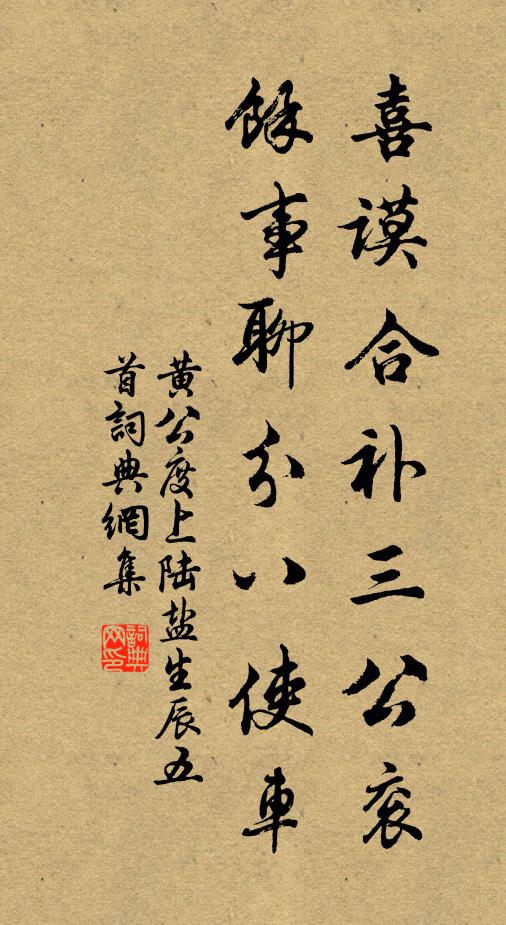 喜谟合补三公衮
馀事聊分八使車
黄公度上陆盐生辰五
首詞典網集
詞典网印